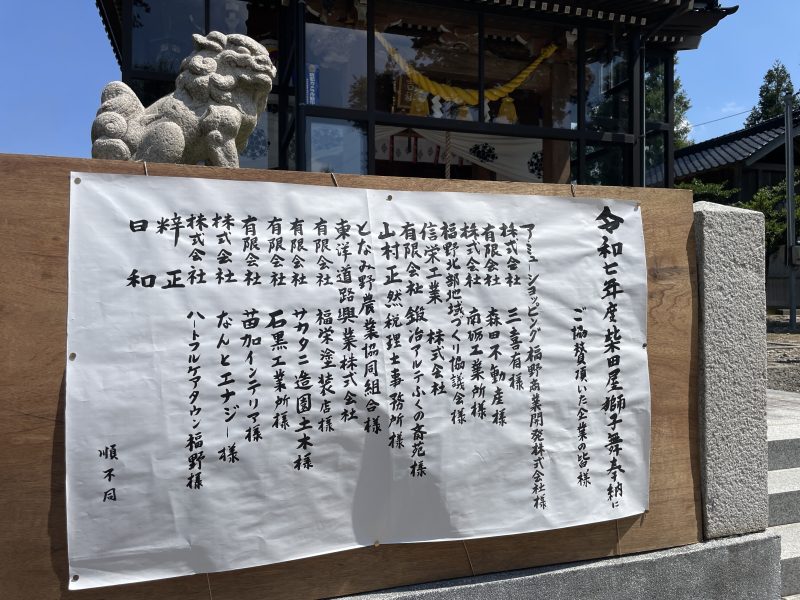 令和七年度柴田屋獅子舞奉納に
ご協賛頂いた企業の皆様
アミューショッピング福野商業開発株式会社様
株式会社 三喜有様
有限会社 森田不動産様
株式会社 南砺工業所様
福野北部地域づくり協議会様
信栄工業 株式会社
有限会社 鍛冶アルテふくの斎苑様
山村正然税理士事務所様
となみ野農業協同組合様
東洋道路興業株式会社
有限会社 福栄塗装店様
有限会社 サカタニ造園土木様
有限会社 石黒工業所様
有限会社 苗加インテリア様
株式会社 なんとエナジー様
株式会社 ハートフルケアタウン福野様
粋 正
日 和
順不同